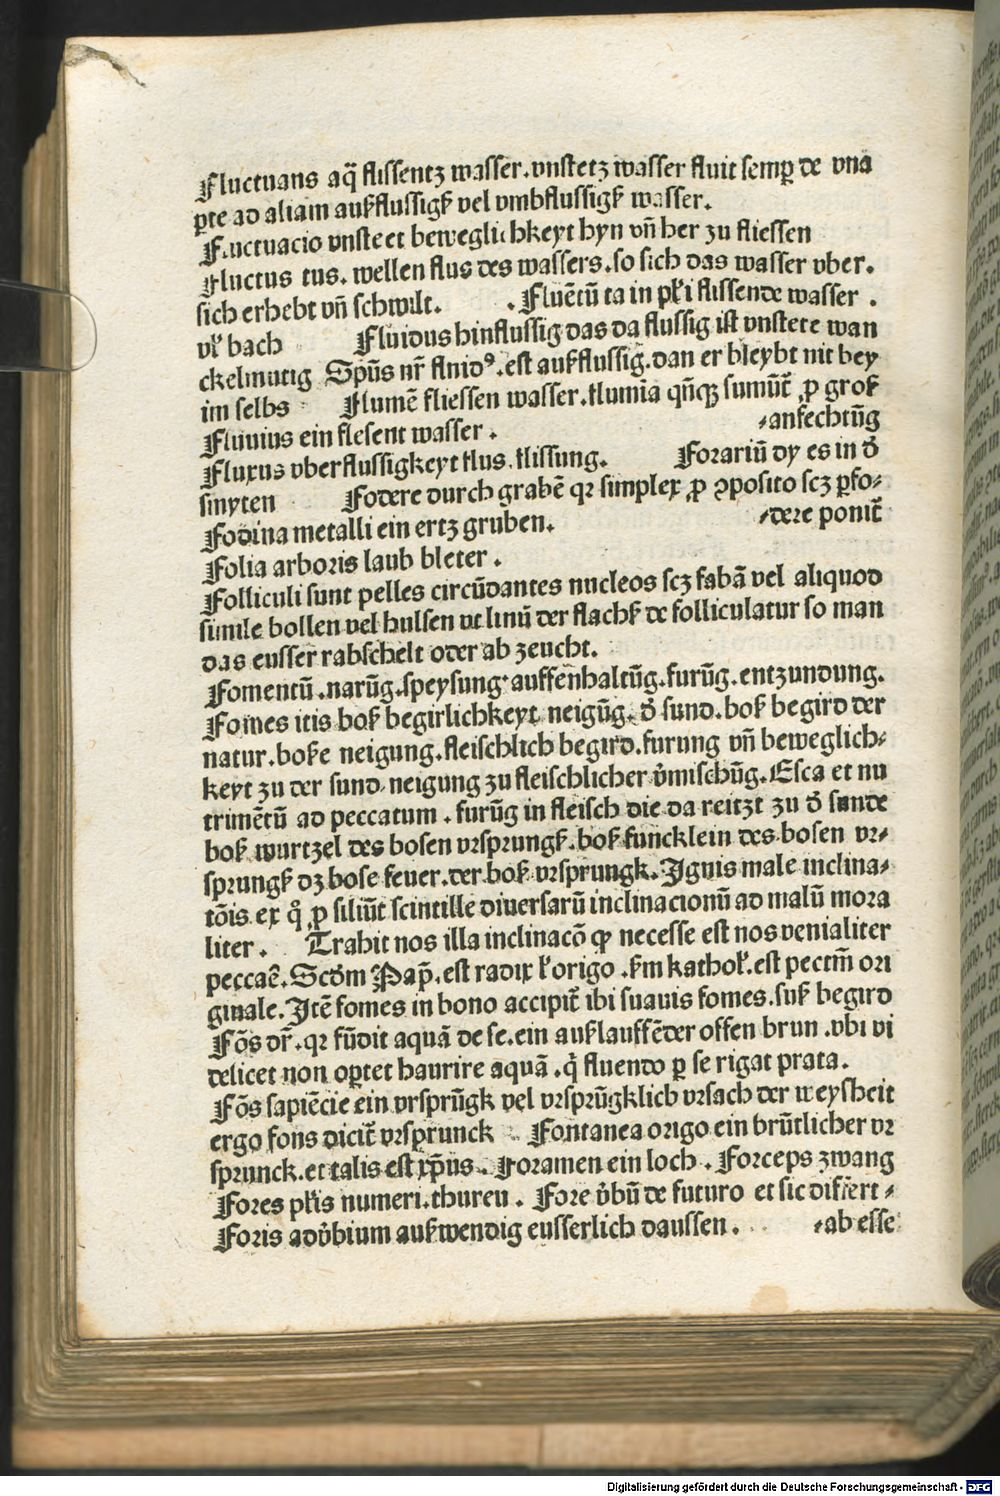 Fluctuans aq̃ flissentz wasser.vnstetz wasser fluit semꝑ de vna
ꝑte ad aliam außflussigß vel vmbflussigß wasser.
Fluctuacio vnsteet beweglichkeyt hyn vñ her zu fliessen
Fluctus tus. wellen flus des wassers.so sich das wasser vber.
sich erhebt vñ schwilt. .Fluẽtũ ta in pl'i flissende wasser .
vl' bach Fluidus hinflussig das da flussig ist vnstete wan
ckelmutig Spũs nr̃ fluidꝰ.est außflussig.dan er bleybt nit bey
im selbs Flumẽ fliessen wasser.flumia qñqꝫ sumũt̃ ꝓ groß
Fluuius ein flesent wasser . ⸗anfechtũg
Fluxus vberflussigkeyt flus.flissung. Forariũ dy es in ð
smyten Fodere durch grabẽ qꝛ simplex ꝓ ꝯposito scꝫ ꝑfo⸗
Fodina metalli ein ertz gruben. ⸗dere ponit̃
Folia arboris laub bleter .
Folliculi sunt pelles circũdantes nucleos scꝫ fabã vel aliquod
simile bollen vel hulsen vt linũ der flachß de folliculatur so man
das eusser rabschelt oder ab zeucht.
Fomentũ.narũg.speysung auffenhaltũg.furũg.entzundung.
Fomes itis boß begirlichkeyt neigũg. ð sund.boß begird der
natur.boße neigung.fleischlich begird.furung vñ beweglich⸗
keyt zu der sund.neigung zu fleischlicher v̉mischũg.Esca et nu
trimẽtũ ad peccatum . furũg in fleisch die da reitzt zu ð sunde
boß wurtzel des bosen vrsprungß.boß funcklein des bosen vr⸗
sprungß dz bose feuer.der boß vrsprungk.Ignis male inclina⸗
tõis ex q̊ ꝓ siliũt scintille diuersarũ inclinacionũ ad malũ mora
liter . Trahit nos illa inclinacõ ꝙ necesse est nos venialiter
peccaẽ.Scðm Pap̃.est radix l'origo .ßm kathol'.est pectm̃ ori
ginale.Itẽ fomes in bono accipit̃ ibi suauis fomes.suß begird
Fõs dr̃.qꝛ fũdit aquã de se.ein außlauffẽder offen brun .vbi vi
delicet non oꝑtet haurire aquã .q̉ fluendo ꝑ se rigat prata.
Fõs sapiẽcie ein vrsprũgk vel vrsprũgklich vrsach der weysheit
ergo fons dicit̃ vrsprunck Fontanea origo ein brũtlicher vr
sprunck.et talis est xp̃us. Foramen ein loch . Forceps zwang
Fores pl'is numeri.thuren . Fore v̉bũ de futuro et sic differt⸗
Foris adv̉bium außwendig eusserlich daussen . ⸗ab esse
Digitalisierung gefördert durch die Deutsche Forschungsgemeinschaft - DFG